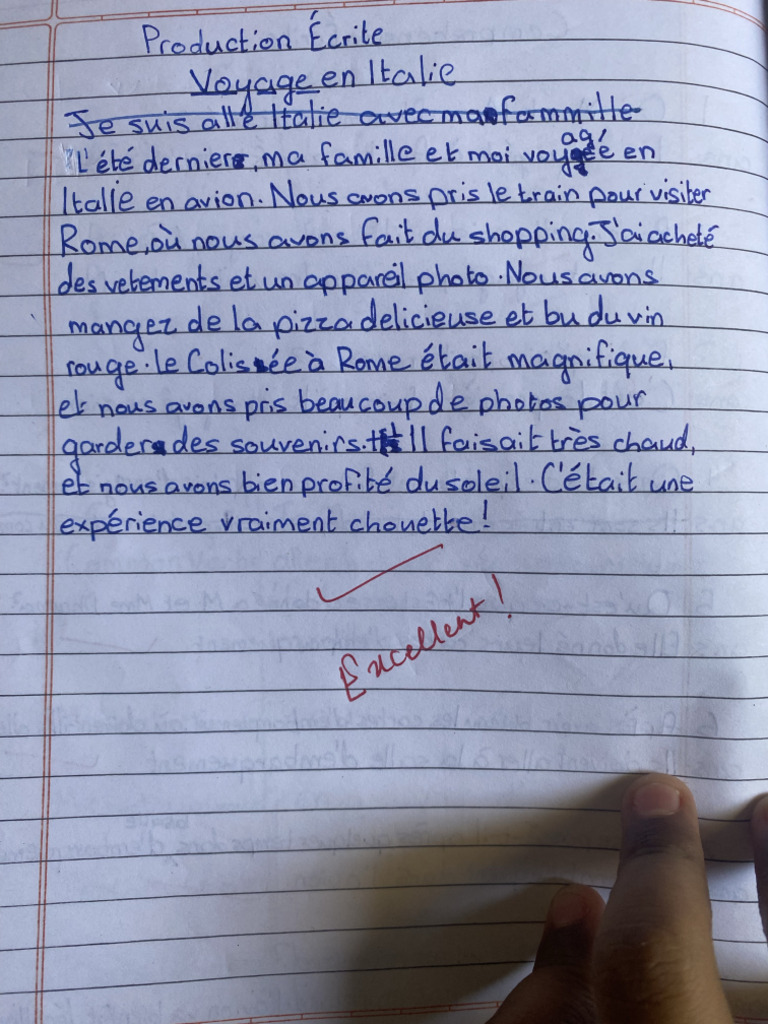 Production Écrite
Voyage en Italie
Je suis allé Italie avec ma fammille
L'été dernier, ma famille et moi voyagé en
Italie en avion. Nous avons pris le train pour visiter
Rome, où nous avons fait du shopping. J'ai acheté
des vetements et un appareil photo. Nous avons
mangez de la pizza delicieuse et bu du vin
rouge. le Colisée à Rome était magnifique,
et nous avons pris beaucoup de photos pour
garder des souvenirs. Il faisait très chaud,
et nous avons bien profité du soleil. C'était une
expérience vraiment chouette!
Excellent!